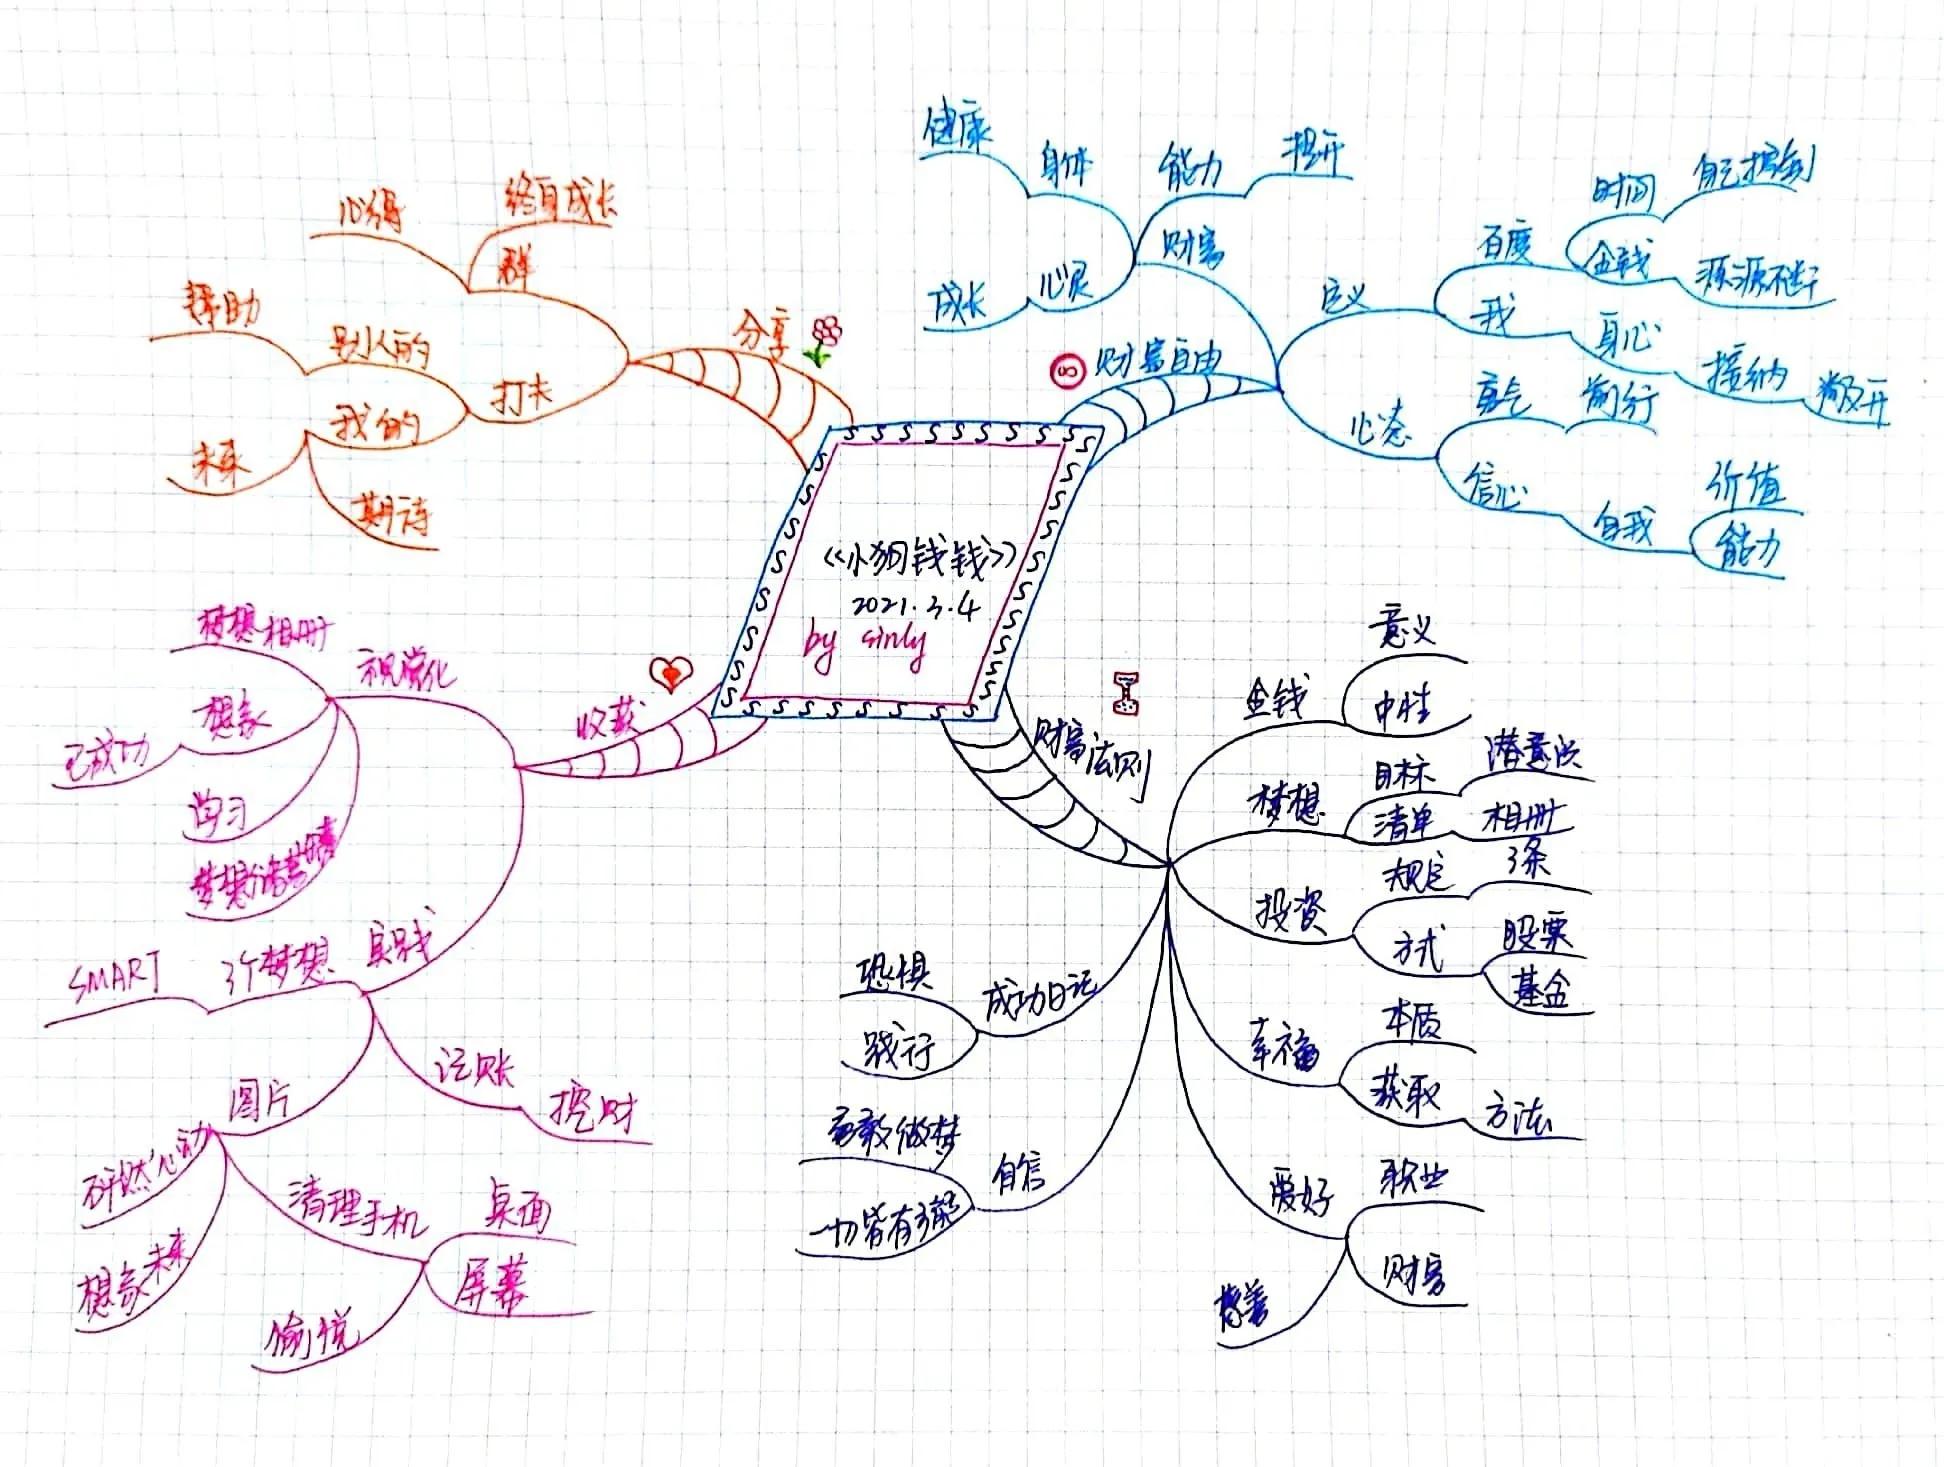 《小狗钱钱》
2021.3.4
by sinly
财富自由
定义
百度
时间
自己控制
金钱
源源不断
我
身心
接纳
心态
勇气
前行
信心
自我
价值
能力
财富
能力
提升
身体
健康
心灵
成长
财富法则
金钱
意义
中性
梦想
目标
潜意识
清单
相册
投资
规定
3条
方式
股票
基金
幸福
本质
获取
方法
爱好
职业
财富
慈善
自信
勇敢做梦
一切皆有可能
成功日记
恐惧
践行
收获
视觉化
梦想相册
想象
已成功
学习
实践
3个梦想
SMART
记账
挖财
图片
砰然心动
想象未来
清理手机
桌面
屏幕
愉悦
分享
群
终身成长
心得
打卡
别人的
帮助
我的
未来
期待